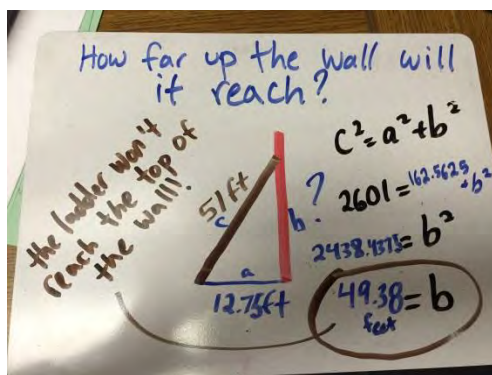 How far up the wall will
it reach?
the ladder won't
reach the top of
the wall!
51ft
c
?
b
a
12.75ft
c²=a²+b²
2601=162.5625+b²
2438.4375=b²
49.38=b
feet